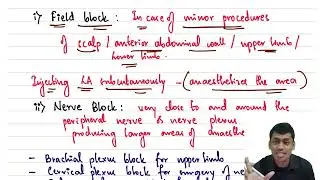 i) Field block : In case of minor procedures
of scalp / anterior abdominal wall / upper limb /
lower limb.
Injecting LA subcutaneously - (anaesthetizes the area)
ii) Nerve Block : very close to and around the
peripheral nerve & nerve plexus
producing larger areas of anaesthe
- Brachial plexus block for upper limb
- Cervical plexus block for surgery of ne